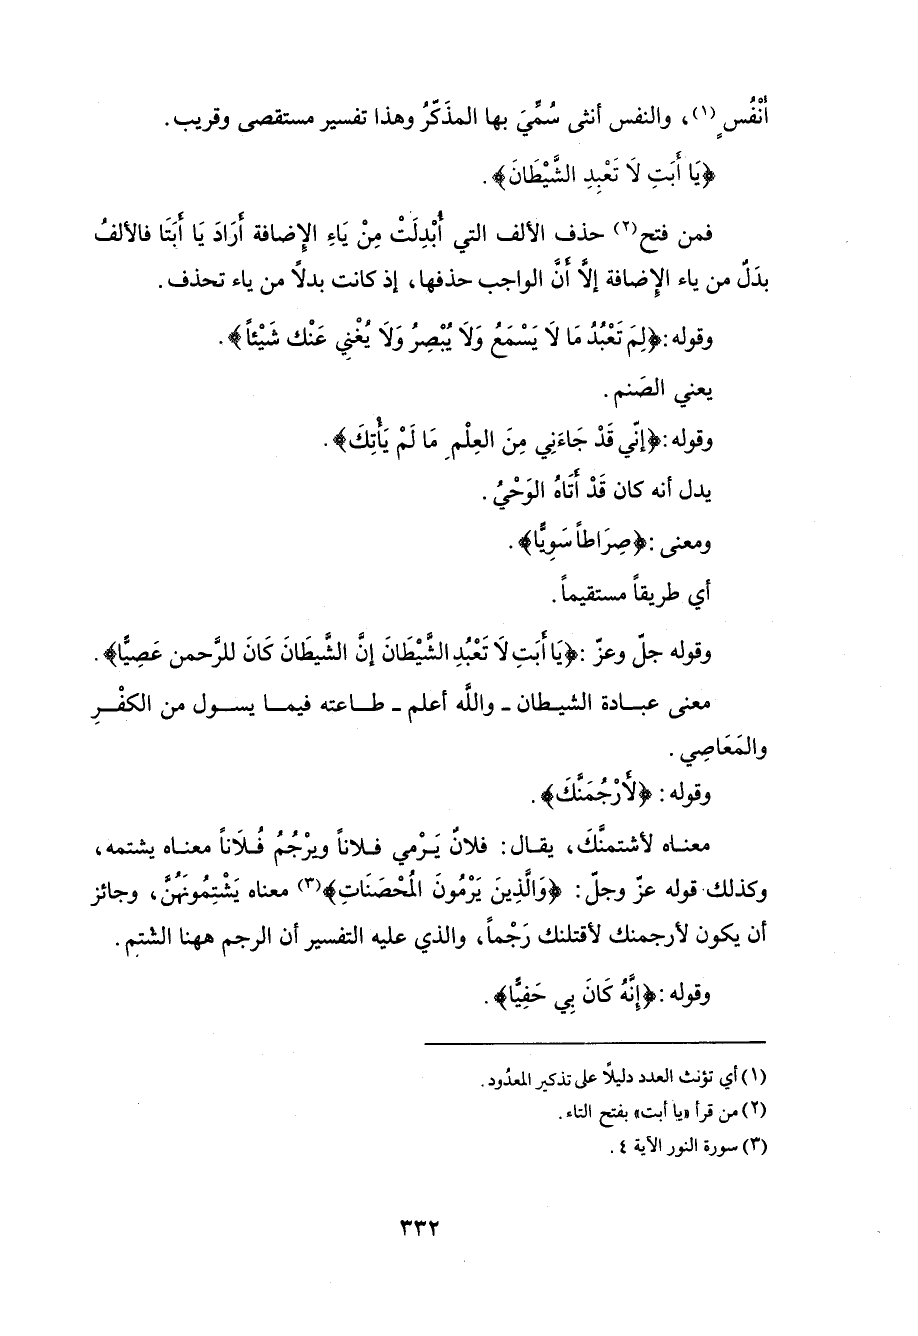 أنْفُسٍ(١)، والنفس أنثى سُمِّيَ بها المذَكّرُ وهذا تفسير مستقصى وقريب.
﴿يَا أَبَتِ لَا تَعْبِدِ الشَّيْطَانَ﴾.
فمن فتح(٢) حذف الألف التي أُبْدِلَتْ مِنْ يَاءِ الإِضافة أَرَادَ يَا أَبَتَا فالألفُ
بدَلٌ من ياء الإِضافة إلاَّ أَنَّ الواجب حذفها، إذ كانت بدلاً من ياء تحذف.
وقوله:﴿لِمَ تَعْبُدُ مَا لَا يَسْمَعُ وَلَا يُبْصِرُ وَلَا يُغْنِي عَنْك شَيْئاً﴾.
يعني الصَنم.
وقوله:﴿إنّي قَدْ جَاءَنِي مِنَ العِلْمِ مَا لَمْ يَأْتِكَ﴾.
يدل أنه كان قَدْ أَتَاهُ الوَحْيُ.
ومعنى:﴿صِرَاطاً سَوِيًّا﴾.
أي طريقاً مستقيماً.
وقوله جلّ وعزّ:﴿يَا أَبَتِ لَا تَعْبُدِ الشَّيْطَانَ إنَّ الشَّيطَانَ كَانَ للرَّحمن عَصِيًّا﴾.
معنى عبادة الشيطان ـ واللَّه أعلم ـ طاعته فيما يسول من الكفْرِ
والمَعَاصِي.
وقوله: ﴿لَأَرْجُمَنَّكَ﴾.
معناه لأشتمنَّكَ، يقال: فلانٌ يَرْمي فلاناً ويرْجُمُ فُلَاناً معناه يشتمه،
وكذلك قوله عزّ وجلّ: ﴿وَالَّذِينَ يَرْمُونَ المُحْصَنَاتِ﴾(٣) معناه يَشْتِمُونَهُنَّ، وجائز
أن يكون لأرجمنك لأقتلنك رَجْماً، والذي عليه التفسير أن الرجم ههنا الشتم.
وقوله:﴿إنَّهُ كَانَ بِي حَفِيًّا﴾.
(١) أي تؤنث العدد دليلاً على تذكير المعدُود.
(٢) من قرأ «يا أبت» بفتح التاء.
(٣) سورة النور الآية ٤.
٣٣٢